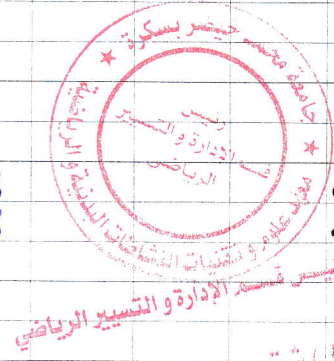 جامعة محمد خيضر بسكرة
معهد علوم و تقنيات النشاطات البدنية والرياضية
رئيس
قسم الإدارة و التسيير
الرياضي
رئيس قسم الإدارة و التسيير الرياضي